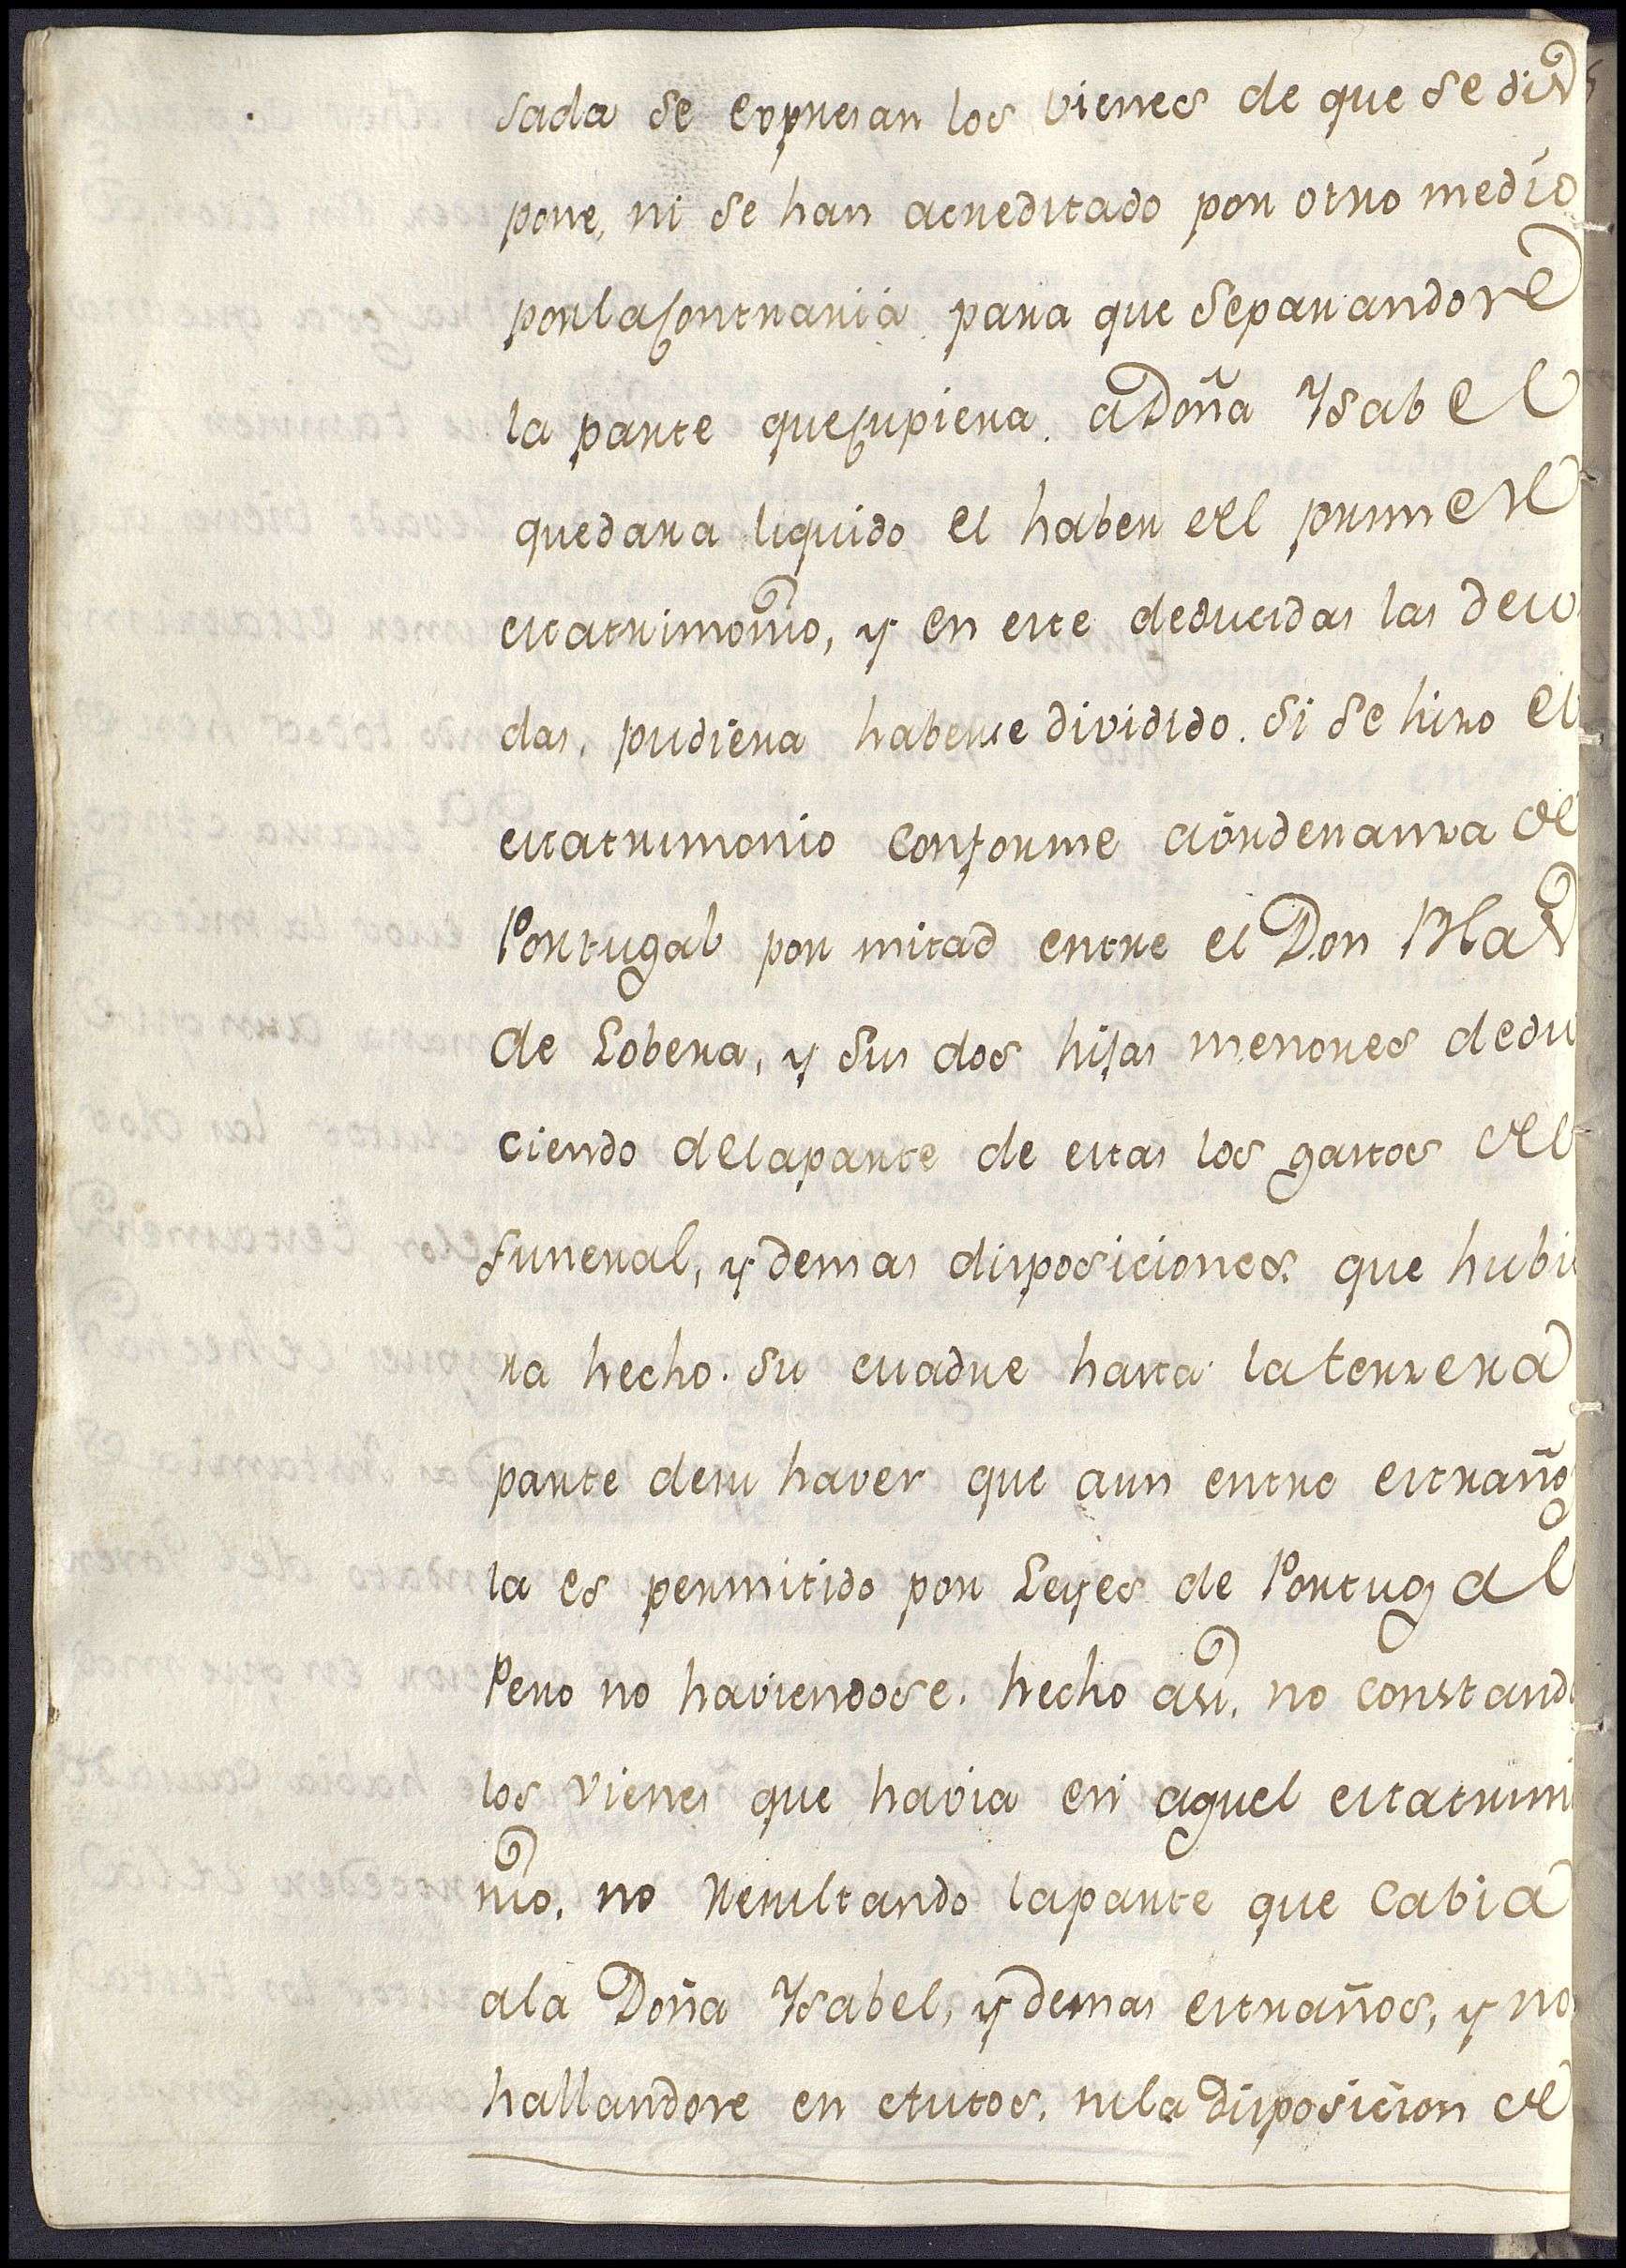 sada se expresan los vienes de que se dis
pone, ni se han acreditado por otro medio
por la contraria para que separandose
la parte que cupiera a Doña Ysabel
quedara liquido el haber del primer
Matrimonio, y en este deducidas las deu
das, pudiera haberse dividido. Si se hizo el
Matrimonio conforme a ordenanza de
Portugal por mitad entre el Don
de Lobera, y sus dos hijas menores dedu
ciendo dela parte de estas los gastos del
funeral, y demas disposiciones. que hubie
ra hecho. su Madre hasta la terzera
parte desu haver que aun entre estraños
la es permitido por Leyes de Portugal
Pero no haviendose. hecho asi, no constando
los vienes que havia en aquel Matrimo
nio, no resultando la parte que cabia
ala Doña Ysabel, y demas estraños, y no
hallandose en Autos, ni la Disposicion de